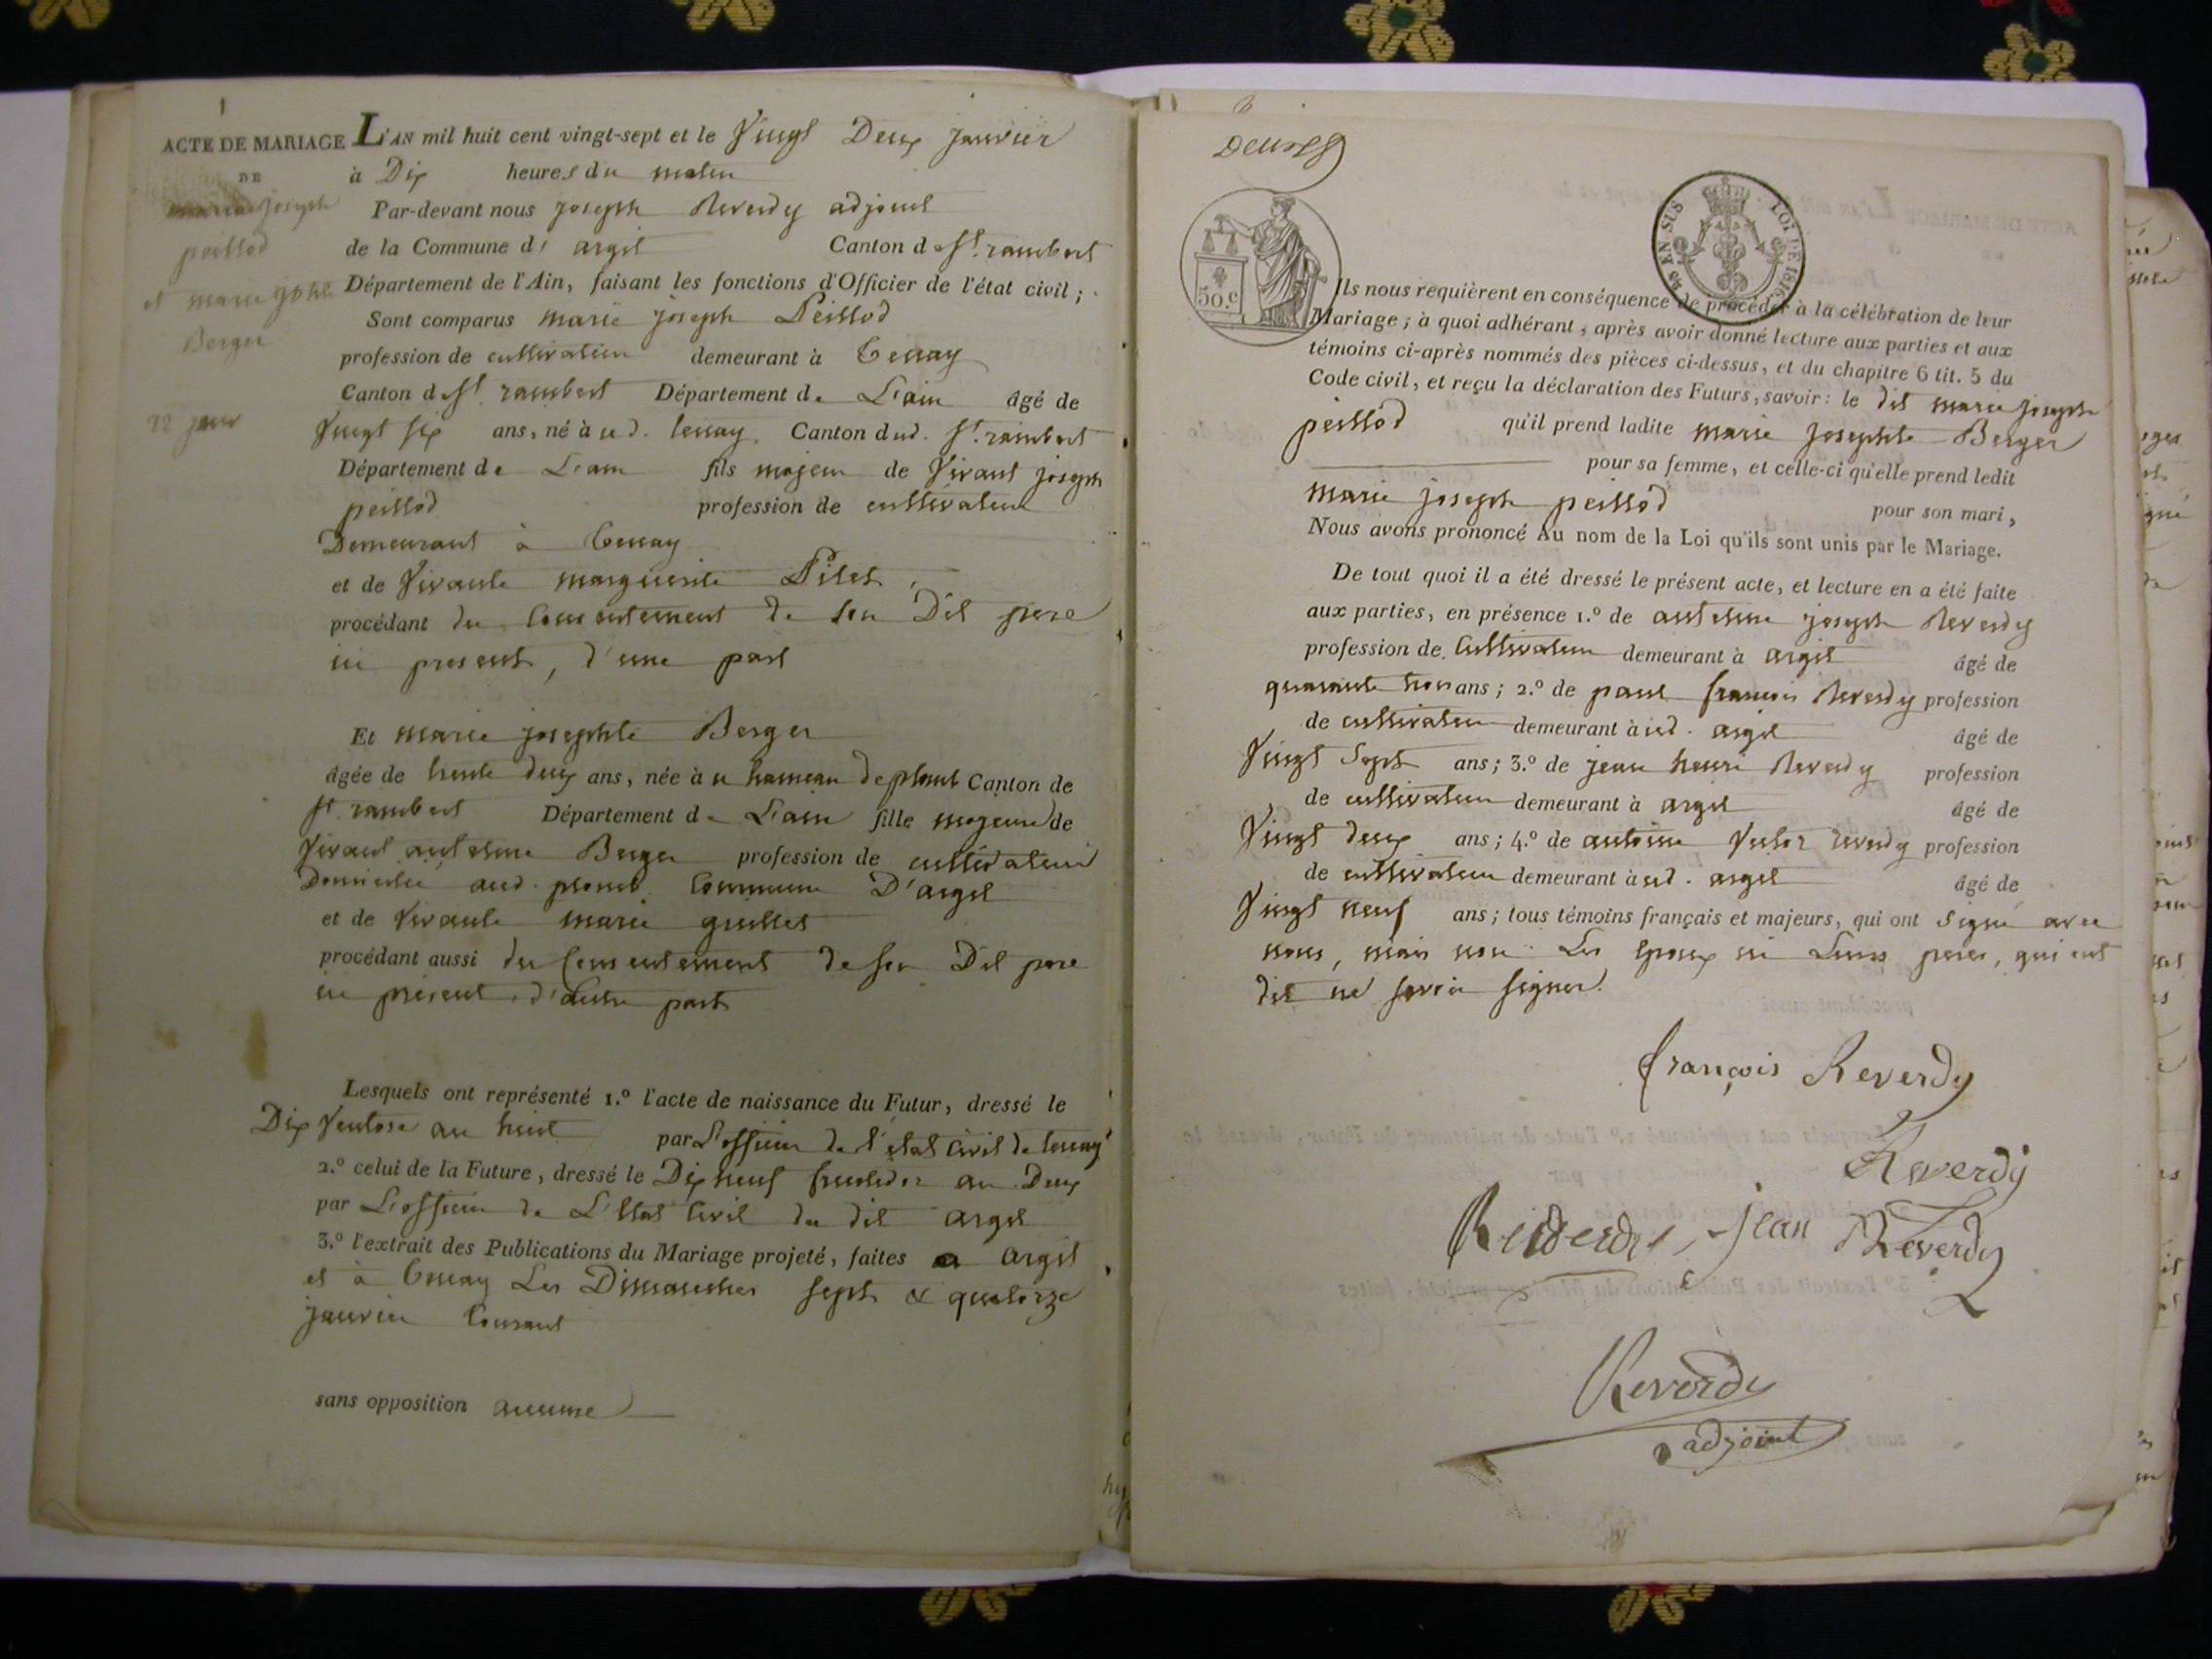 1
ACTE DE MARIAGE
DE
marie joseph
peillod
et marie jophte
Berger
22 janv
L'AN mil huit cent vingt-sept et le Vingt Deux janvier
à Dix heures du matin
Par-devant nous joseph Reverdy adjoint
de la Commune d' argit Canton de St. rambert
Département de l'Ain, faisant les fonctions d'Officier de l'état civil ;
Sont comparus marie joseph Peillod
profession de cultivateur demeurant à Cessay
Canton de St. rambert Département de L'ain âgé de
Vingt six ans, né à ud. Canton dud. St. rambert
Département de L'ain fils majeur de Vivant joseph
peillod profession de cultivateur
Demeurant à
et de Vivante marguerite Pilet,
procédant du Consentement de son Dit pere
ici present, d'une part
Et marie josephte Berger
âgée de trente deux ans, née à u hameau de plomb Canton de
St. rambert Département de L'ain fille majeure de
Vivant antelme Berger profession de cultivateur
Domicilié aud. plomb Commune D'argit
et de Vivante marie guillet
procédant aussi du Consentement de son Dit pere
ici présent, d'autre part
Lesquels ont représenté 1.º l'acte de naissance du Futur, dressé le
Dix Ventose an huit par L'officier de l'état civil de
2.º celui de la Future, dressé le Dix neuf fructidor an Deux
par L'officier de L'Etat Civil du dit argit
3.º l'extrait des Publications du Mariage projeté, faites a argit
et à Les Dimanches sept & quatorze
janvier Courant
sans opposition aucune
Deux
50.c
EN SUS LOI DE 1816
Ils nous requièrent en conséquence de procéder à la célébration de leur
Mariage ; à quoi adhérant, après avoir donné lecture aux parties et aux
témoins ci-après nommés des pièces ci-dessus, et du chapitre 6 tit. 5 du
Code civil, et reçu la déclaration des Futurs, savoir : le dit marie joseph
peillod qu'il prend ladite marie josephte Berger
pour sa femme, et celle-ci qu'elle prend ledit
marie joseph peillod pour son mari,
Nous avons prononcé Au nom de la Loi qu'ils sont unis par le Mariage.
De tout quoi il a été dressé le présent acte, et lecture en a été faite
aux parties, en présence 1.º de antelme joseph Reverdy
profession de Cultivateur demeurant à argit âgé de
quarante trois ans ; 2.º de paul françois Reverdy profession
de cultivateur demeurant à ud. argit âgé de
Vingt Sept ans ; 3.º de jean henri Reverdy profession
de cultivateur demeurant à argit âgé de
Vingt deux ans ; 4.º de antoine Victor reverdy profession
de cultivateur demeurant à ud. argit âgé de
Vingt neuf ans ; tous témoins français et majeurs, qui ont signé avec
nous, mais non Les Epoux ni Leurs peres, qui ont
dit ne savoir signer.
françois Reverdy
Reverdy
Reverdy, Jean Reverdy
Reverdy
adjoint